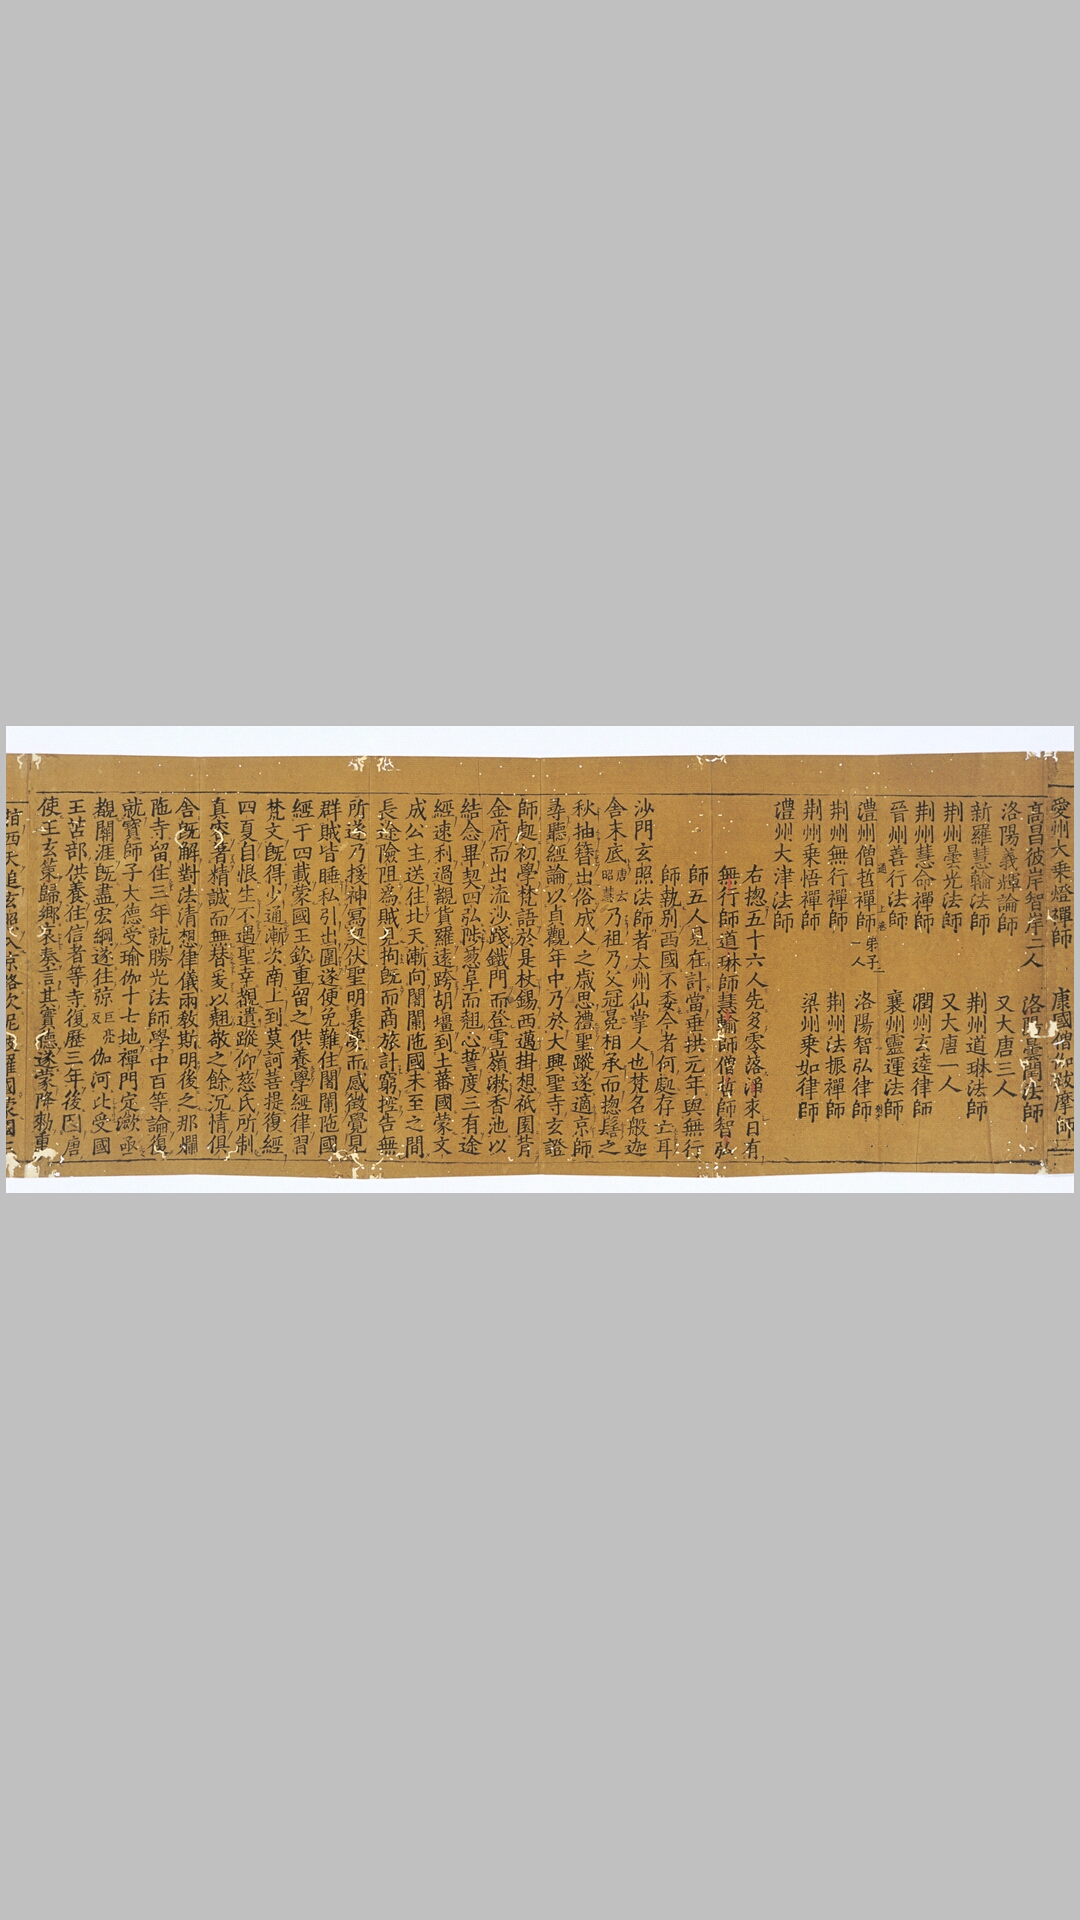 愛州大乗燈禪師　康國僧伽跋摩師
高昌彼岸智岸二人　洛陽曇閏法師
洛陽義輝論師　又大唐三人
新羅慧輪法師　荆州道琳法師
荆州曇光法師　又大唐一人
荆州慧命禪師　潤州玄逵律師
晉州善行法師　襄州靈運法師
澧州僧哲禪師弟子一人　洛陽智弘律師
荆州無行禪師　荆州法振禪師
荆州乗悟禪師　梁州乗如律師
澧州大津法師
右揔五十六人先多零落淨來日有
無行師道琳師慧輪師僧哲師智弘
師五人見在計當垂拱元年與無行
師執別西國不委今者何處存亡耳
沙門玄照法師者太州仙掌人也梵名般迦
舎末底唐云昭慧乃祖乃父冠冕相承而揔髫之
秋抽簪出俗成人之歳思禮聖蹤遂適京師
尋聽經論以貞觀年中乃於大興聖寺玄證
師處初學梵語於是杖錫西邁掛想祇園背
金府而出流沙踐鐵門而登雪嶺漱香池以
結念畢契四弘陟葱阜而翹心誓度三有途
經速利過覩貨羅遠跨胡壃到土蕃國蒙文
成公主送往北天漸向闍闌陁國未至之間
長途險阻爲賊見拘既而商旅計窮控告無
所遂乃援神寫契伏聖明衷夢而感徴覺見
群賊皆睡私引出圍遂便免難住闍闌陁國
經于四載蒙國王欽重留之供養學經律習
梵文既得少通漸次南上到莫訶菩提復經
四夏自恨生不遇聖幸覩遺蹤仰慈氏所制
真容著精誠而無替爰以翹敬之餘沉情俱
舎既解對法清想律儀兩教斯明後之那爛
陁寺留住三年就勝光法師學中百等論復
就寳師子大德受瑜伽十七地禪門定瀲亟
覩關涯既盡宏綱遂往弶巨亮反伽河北受國
王苫部供養住信者等寺復歴三年後因唐
使王玄策歸郷表奏言其實德遂蒙降勅重